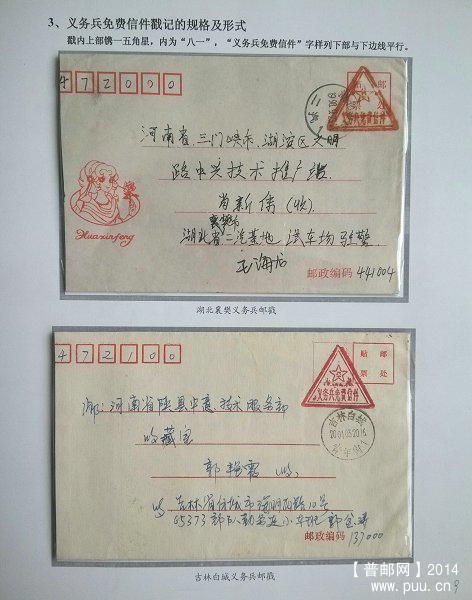 3、义务兵免费信件戳记的规格及形式
戳内上部镌一五角星，内为“八一”，“义务兵免费信件”字样列下部与下边线平行。
472000
贴 邮
票 处
义务兵免费信件
河南省三门峡市湖滨区文明
路中兴技术推广站
肖新伟(收)
Huaxinfeng
湖北省二汽基地 汽车场
邮政编码 441004
湖北襄樊义务兵邮戳
472100
贴 邮
票 处
义务兵免费信件
吉林白城
河南省陕县中意技术服务部
郭艳霞
吉林省白城市
65373部队勤务连小车班
邮政编码 137000
吉林白城义务兵邮戳
【普邮网】2014
www.puu.cn